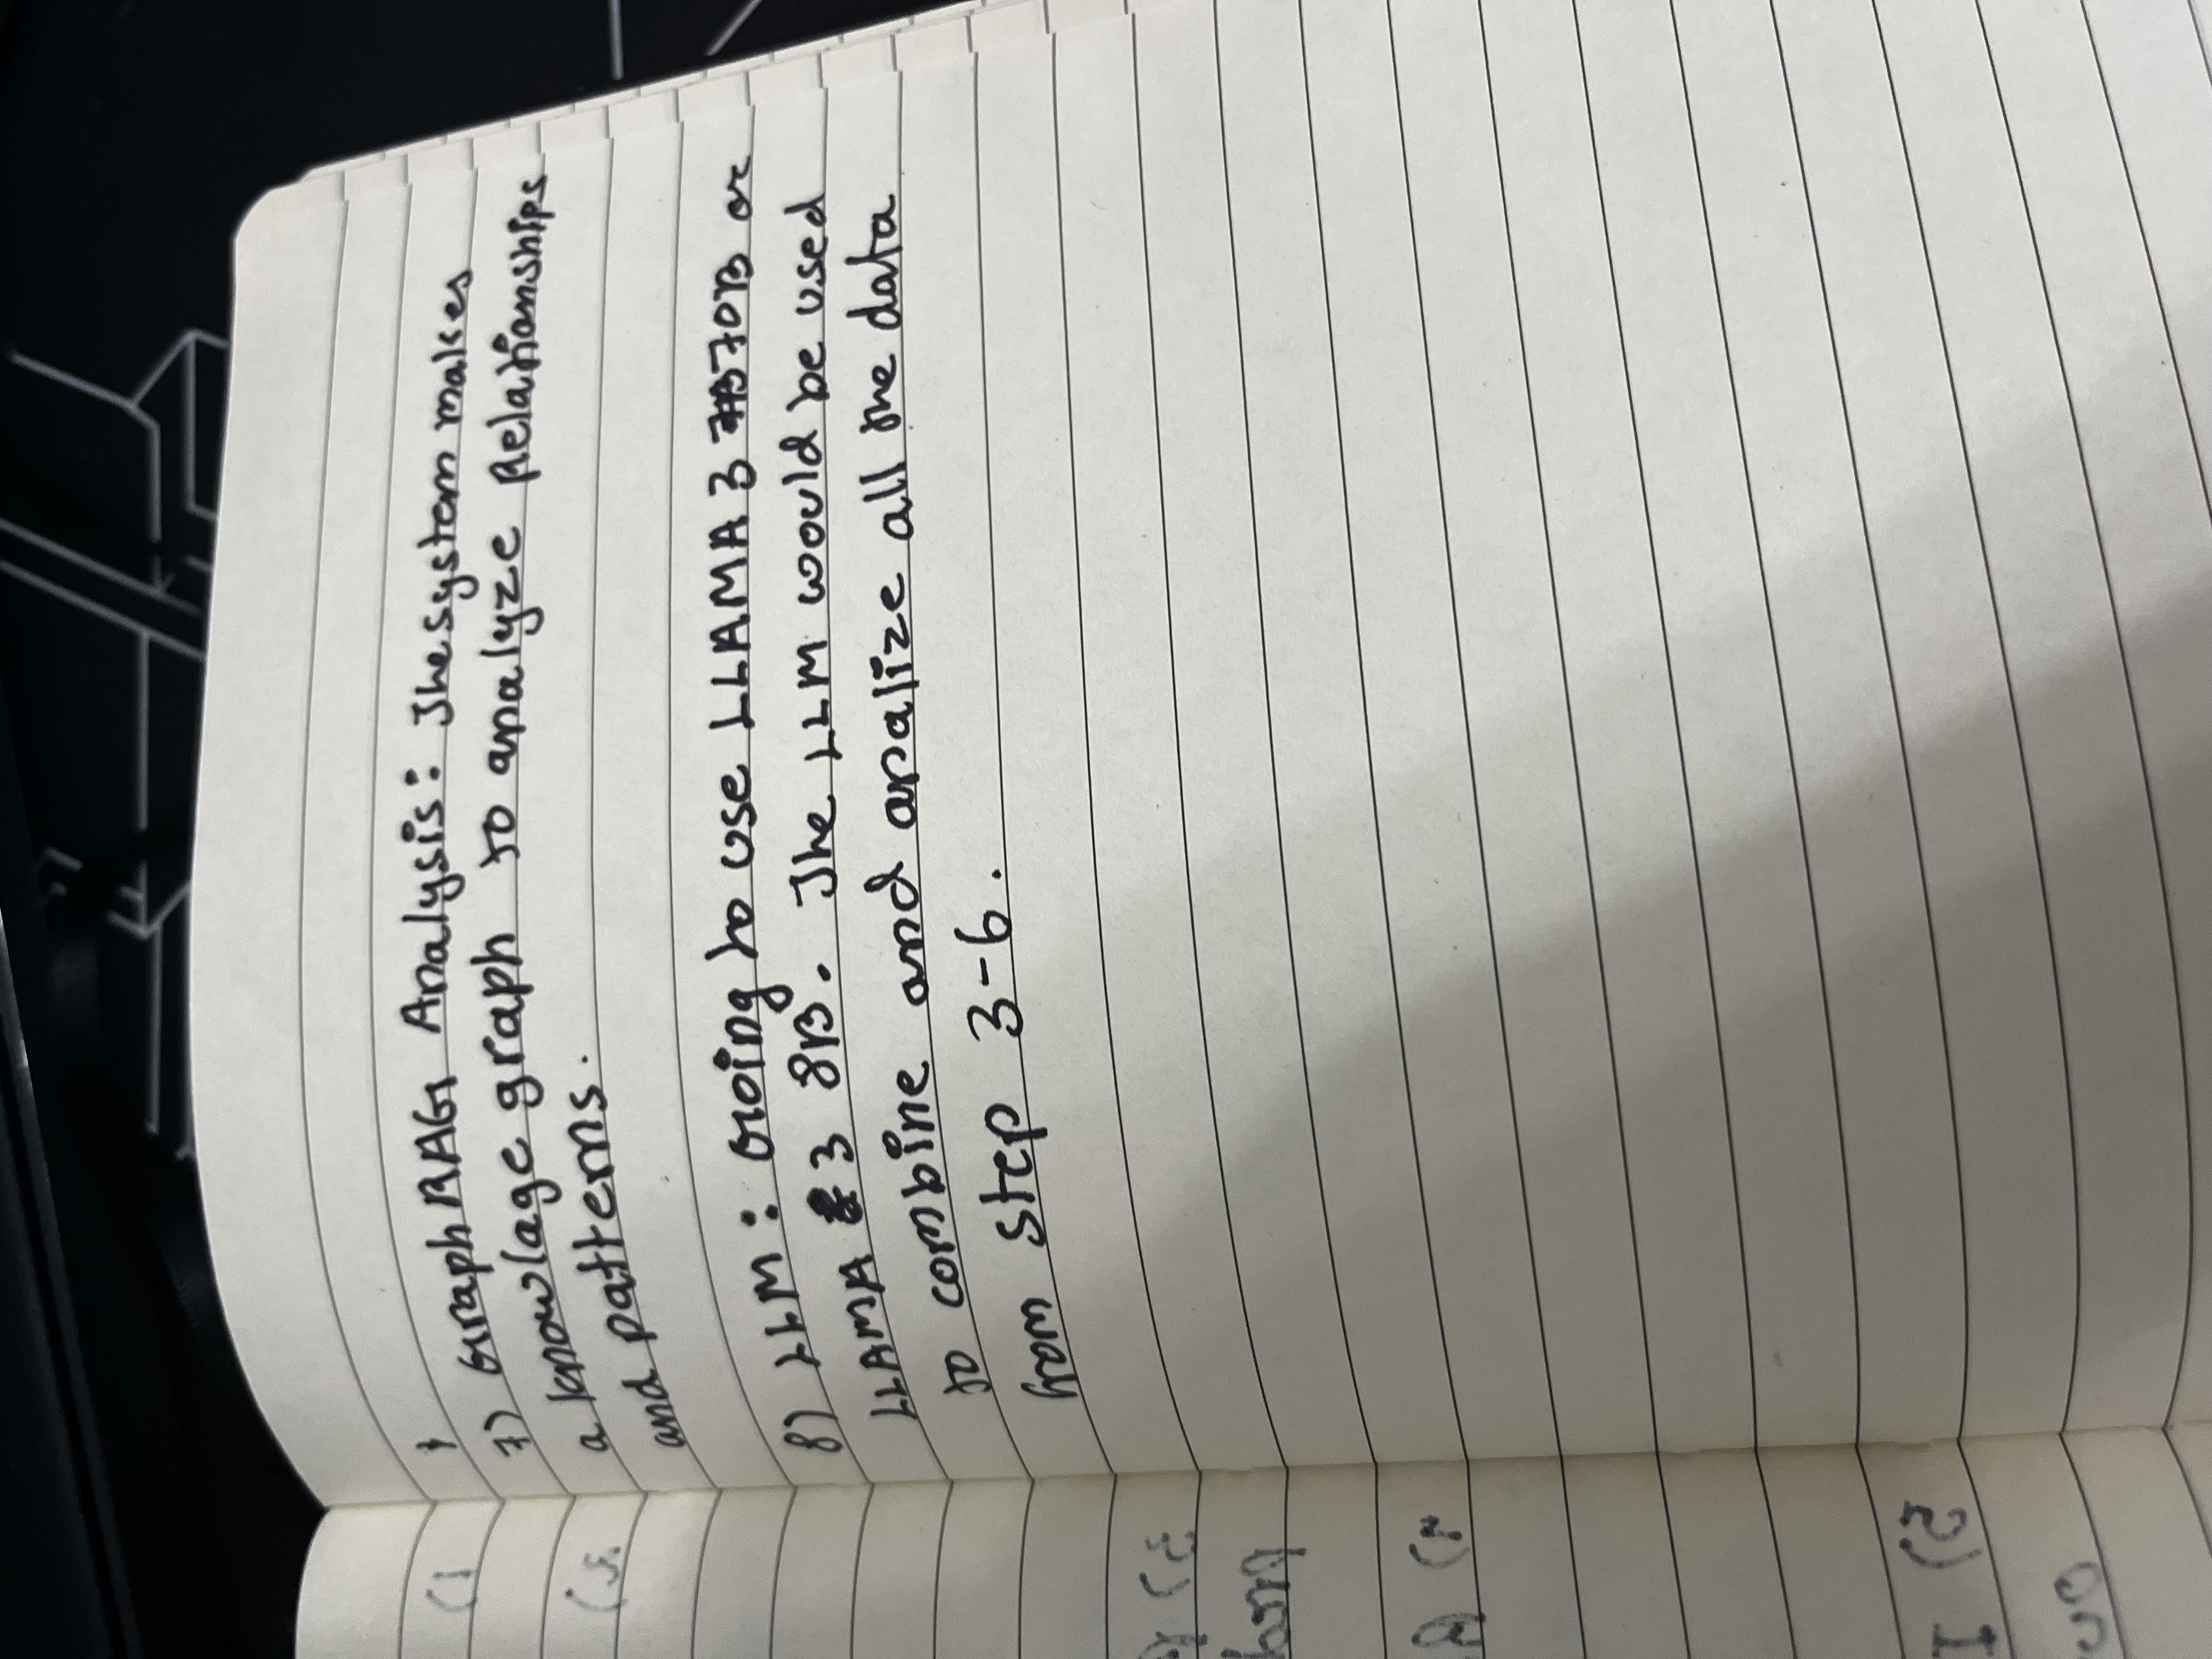 7) Graph RAG Analysis: The system makes
a knowlage graph to analyze Relationships
and patterns.
8) LLM: Going to use LLAMA 3 70B or
LLAMA 3 8B. The LLM would be used
to combine and analize all the data
from step 3-6.
1)
2)
3)
4)
5) I